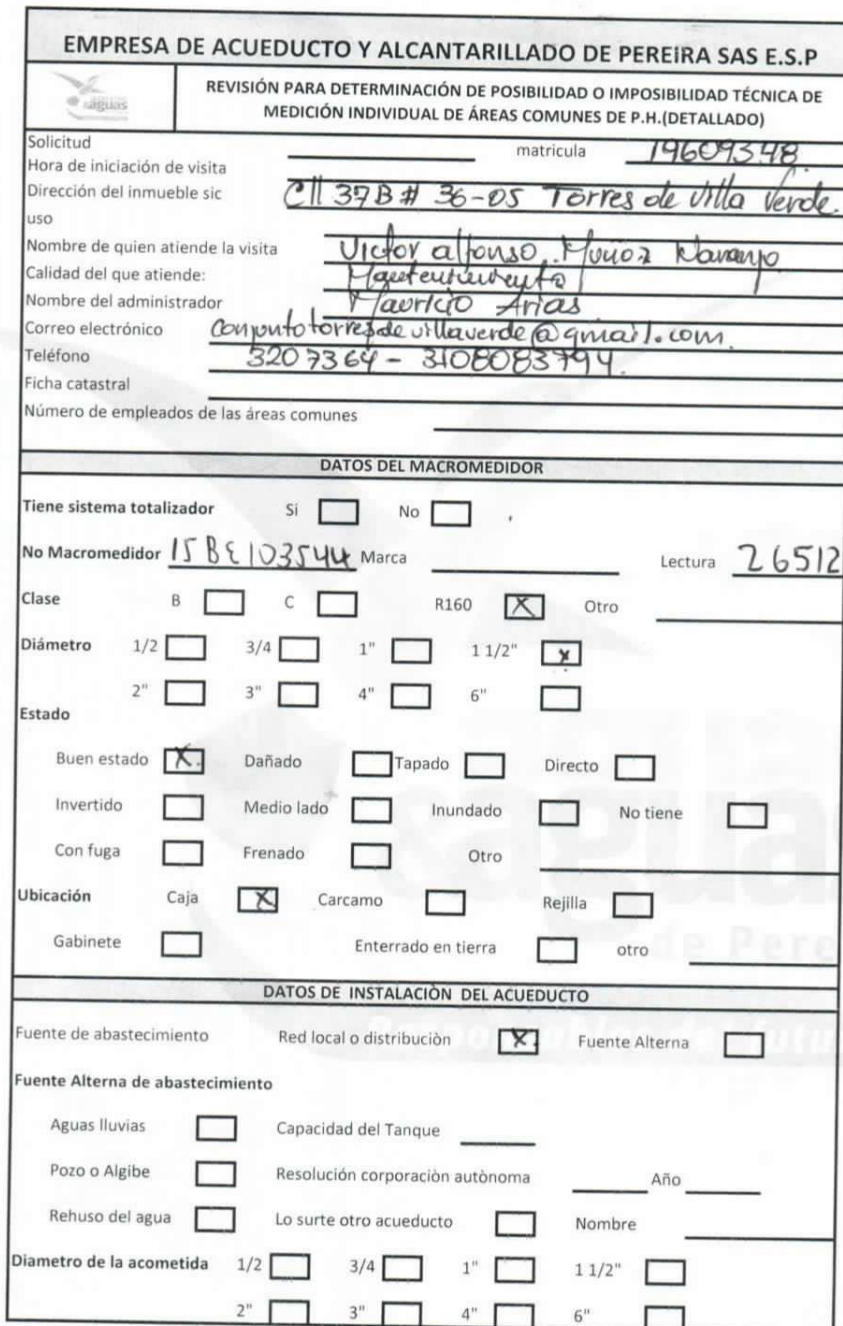 EMPRESA DE ACUEDUCTO Y ALCANTARILLADO DE PEREIRA SAS E.S.P
aguas
REVISIÓN PARA DETERMINACIÓN DE POSIBILIDAD O IMPOSIBILIDAD TÉCNICA DE
MEDICIÓN INDIVIDUAL DE ÁREAS COMUNES DE P.H.(DETALLADO)
Solicitud matricula 19609348
Hora de iniciación de visita
Dirección del inmueble sic Cll 37B # 36-05 Torres de villa verde.
uso
Nombre de quien atiende la visita Victor alfonso Muñoz Naranjo
Calidad del que atiende: Mantenimiento
Nombre del administrador Mauricio Arias
Correo electrónico conjuntotorresdevillaverde@gmail.com.
Teléfono 3207364 - 3108083794.
Ficha catastral
Número de empleados de las áreas comunes
DATOS DEL MACROMEDIDOR
Tiene sistema totalizador Si No
No Macromedidor 15BE103544 Marca Lectura 26512
Clase B C R160 X Otro
Diámetro 1/2 3/4 1" 1 1/2" x
2" 3" 4" 6"
Estado
Buen estado X. Dañado Tapado Directo
Invertido Medio lado Inundado No tiene
Con fuga Frenado Otro
Ubicación Caja X Carcamo Rejilla
Gabinete Enterrado en tierra otro
DATOS DE INSTALACIÒN DEL ACUEDUCTO
Fuente de abastecimiento Red local o distribuciòn X. Fuente Alterna
Fuente Alterna de abastecimiento
Aguas lluvias Capacidad del Tanque
Pozo o Algibe Resolución corporaciòn autònoma Año
Rehuso del agua Lo surte otro acueducto Nombre
Diametro de la acometida 1/2 3/4 1" 1 1/2"
2" 3" 4" 6"